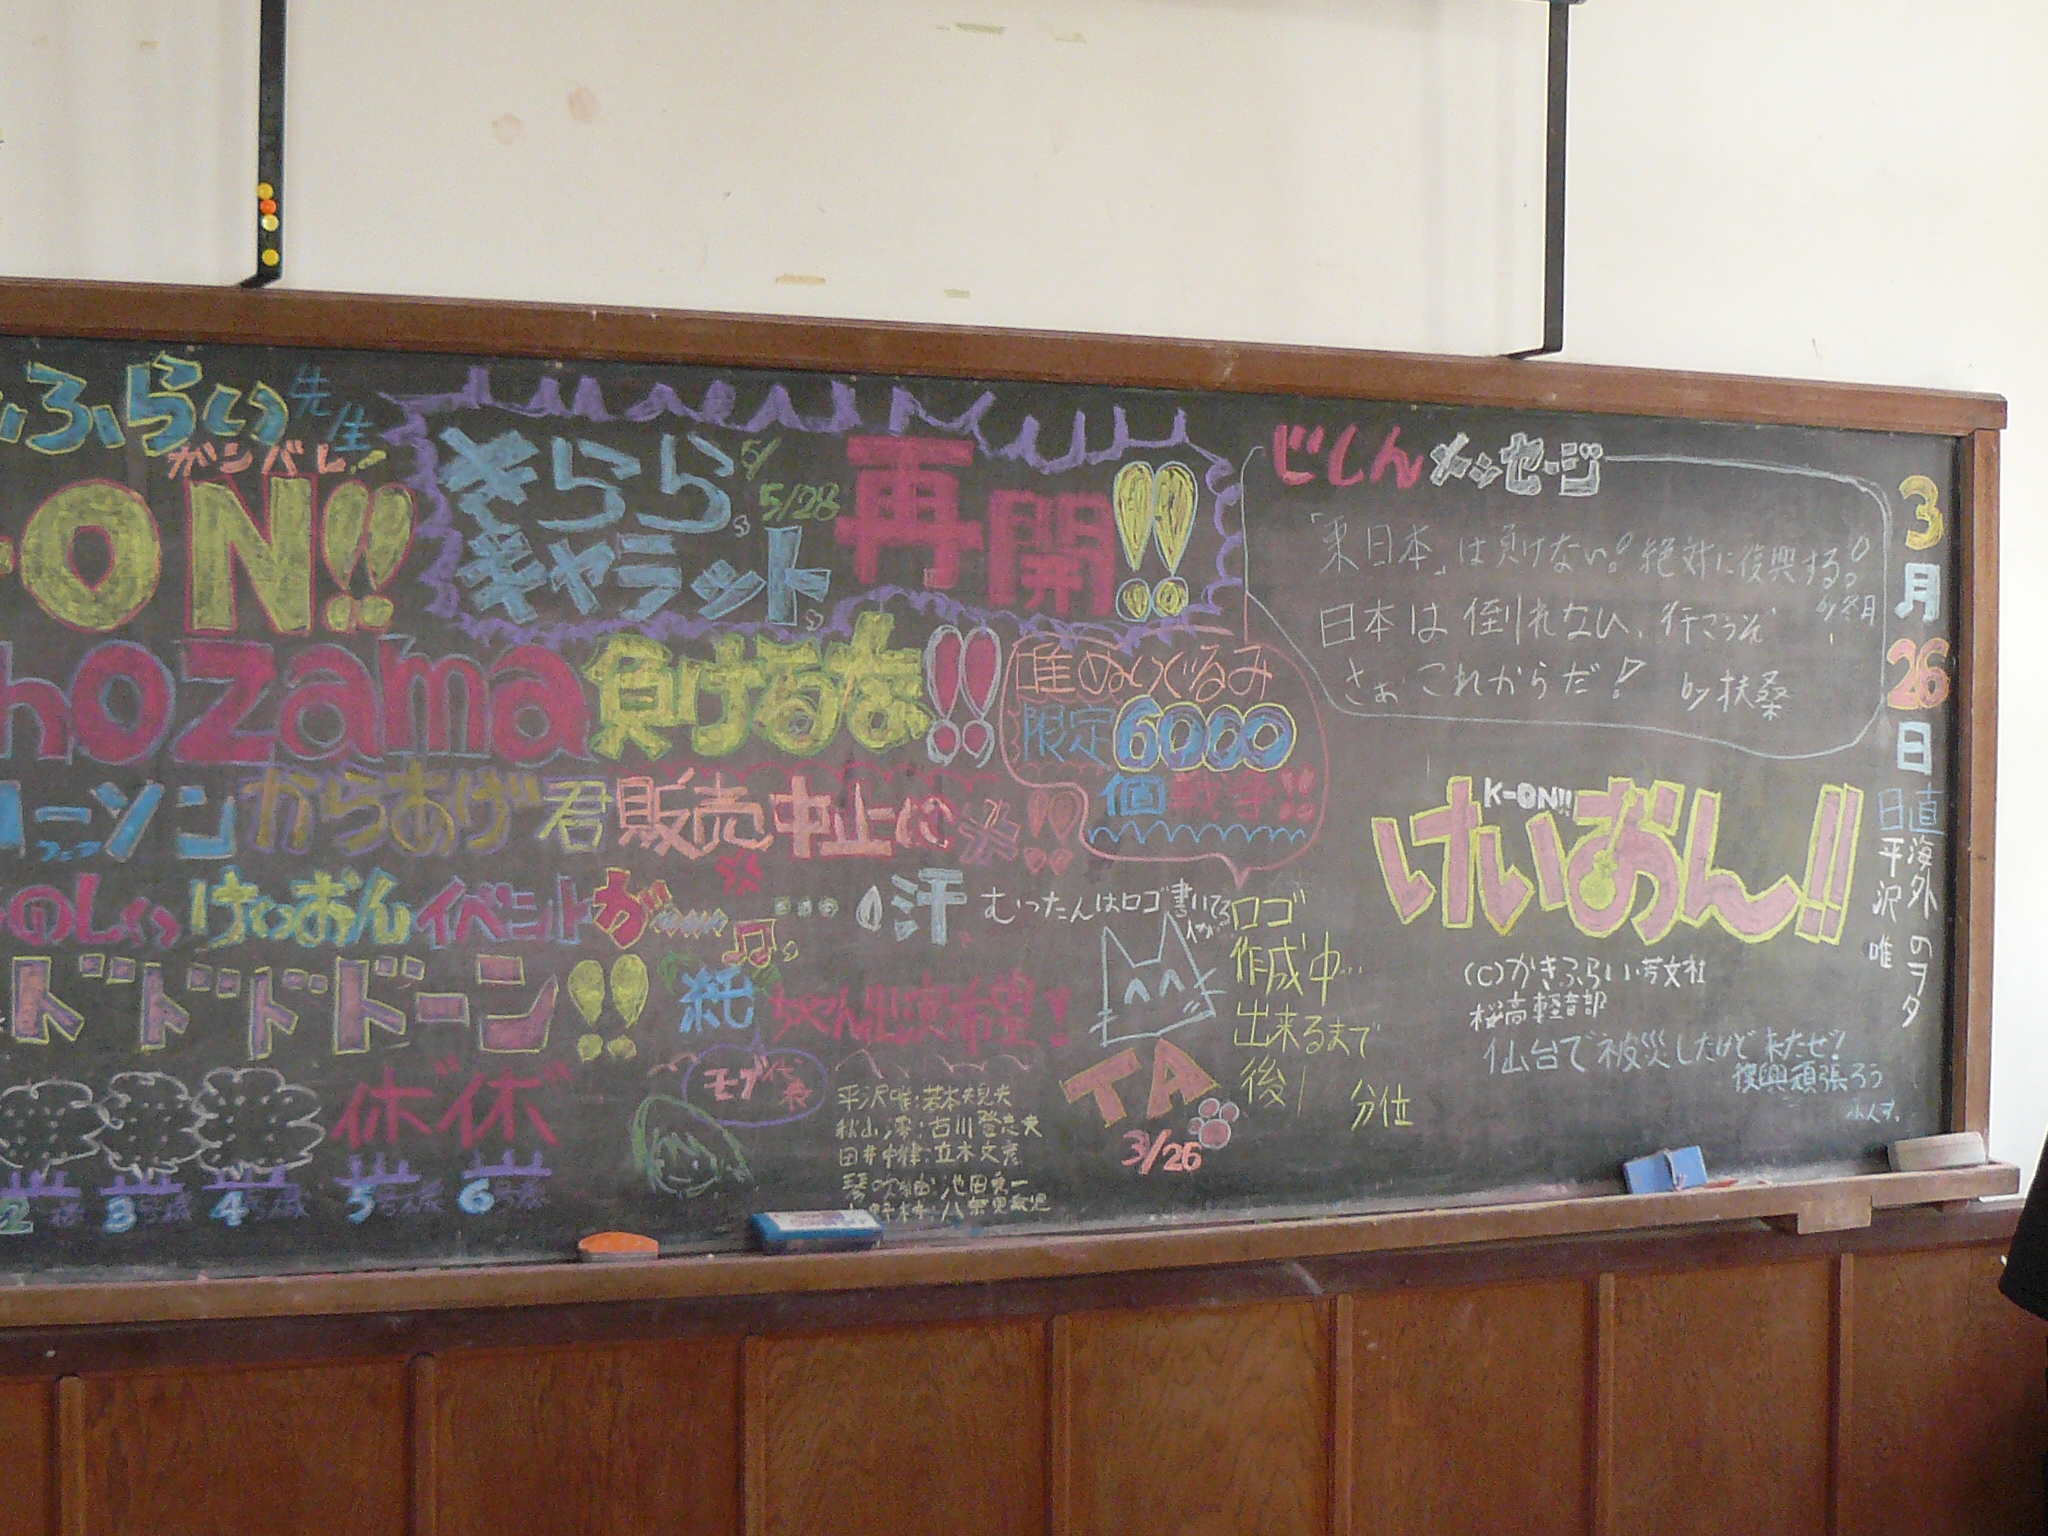 ふらい先生
ガンバレ!
ON!!
きらら
5/28
キャラット
再開!!
hozama負けるな!!
唯ぬいぐるみ
限定6000
個戦争!!
ローソンからあげ君販売中止に
のしいけいおんイベントが
汗
むったんはロゴ書いてる
ロゴ
作成中…
出来るまで
後1分位
ドドドドーン!!
純ちゃん出演希望!
モブ代表
平沢唯:若本規夫
秋山澪:古川登志夫
田井中律:立木文彦
琴吹紬:池田秀一
休"休"
2 3 4 5 6
TA
3/26
じしんメッセージ
「東日本」は負けない。絶対に復興する。
日本は倒れない、行こうぜ
さぁこれからだ! by扶桑
K-ON!!
けいおん!!
(C)かきふらい・芳文社
桜高軽音部
仙台で被災したけど来たぜ!
復興頑張ろう
3月26日
日直
海外のヲタ
平沢唯